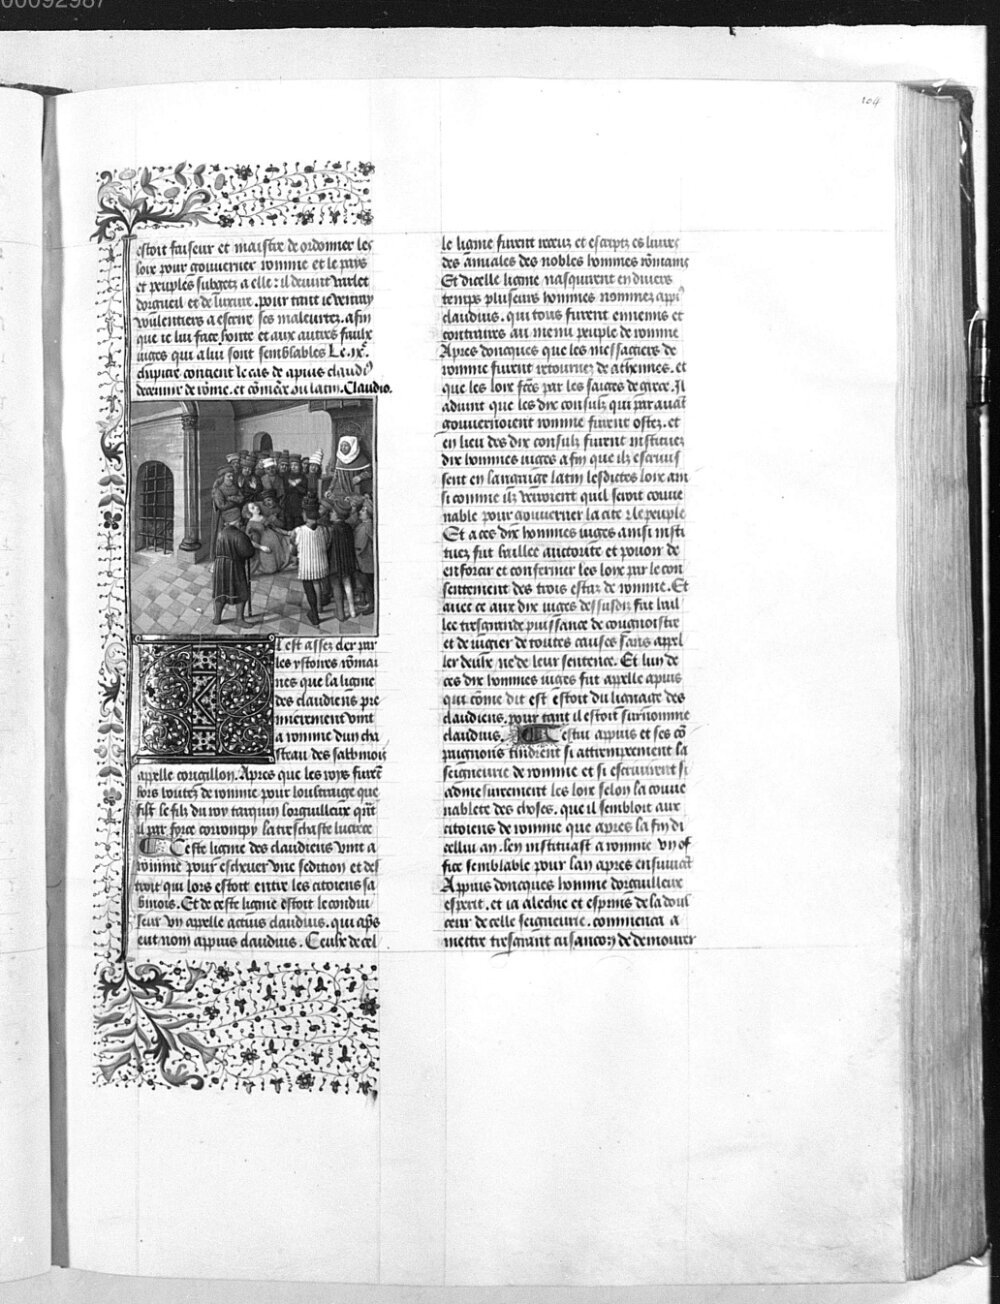 00092987
104
estoit faiseur et maistre de ordonner les
loix pour gouuerner romme et le pays
et peuples subgetz a elle : il deuint varlet
dorgueil et de luxure . pour tant ie Reuiay
voulentiers a escrire ses maleurtez . afin
que ie lui face honte et aux autres faulx
iuges qui a lui sont semblables Le .ix.e
chapitre contient le cas de apius claudi9
decemvir de rōme . et cōmēce ou latin . Claudio.
Il est assez cler par
les ystoires rōmai
nes que la ligne
des claudiens pre
mierement vint
a romme dun cha
steau des sabinois
apelle corigillon . Apres que les roys furēt
hors boutez de romme pour loultraige que
fist le filz du roy tarquin lorguilleux qnt
il par force corrompy la treschaste lucrece
Ceste ligne des claudiens vint a
romme pour escheuer vne sedition et des
roit qui lors estoit entre les citoiens sa
binois . Et de ceste ligne estoit le condui
seur vn apelle actius claudius . qui aps
eut nom appius claudius . Ceulx de cel
le ligne furent receuz et escriptz es liures
des annales des nobles hommes rōmains
Et dicelle ligne nasquirent en diuers
temps pluseurs hommes nommez appi9
claudius . qui tous furent ennemis et
contraires au menu peuple de romme
Apres doncques que les messagiers de
romme furent retournez de athennes . et
que les loix fēs par les saiges de grece . Il
aduint que les dix consulz qui par auāt
gouuernoient romme furent ostez . et
en lieu des dix consulz furent instituez
dix hommes iuges afin que ilz escriuis
sent en languaige latin lesdictes loix ain
si comme ilz verroient quil seroit conue
nable pour gouuerner la cite et le peuple
Et a ces dix hommes iuges ainsi insti
tuez fut baillee auctorite et pouoir de
enforcir et confermer les loix par le con
sentement des trois estaz de romme . Et
auec ce aux dix iuges dessusdiz fut bail
lee tresgrande puissance de congnoistre
et de iugier de toutes causes sans appel
ler deulx ne de leur sentence . Et lun de
ces dix hommes iuges fut appelle apius
qui cōme dit est estoit du lignage des
claudiens . pour tant il estoit surnomme
claudius . Cestui appius et ses cō
paignons tindrent si attrempeement la
seigneurie de romme et si escriuirent si
admesureement les loix selon la conue
nablete des choses . que il sembloit aux
citoiens de romme que apres la fin di
cellui an . len instituast a romme vn of
fice semblable pour lan apres ensuiuāt
Appius doncques homme dorguilleux
esperit . et ia aleche et espris de la doul
ceur de celle seigneurie . commenca a
mettre tresgrant cusancon de demourer